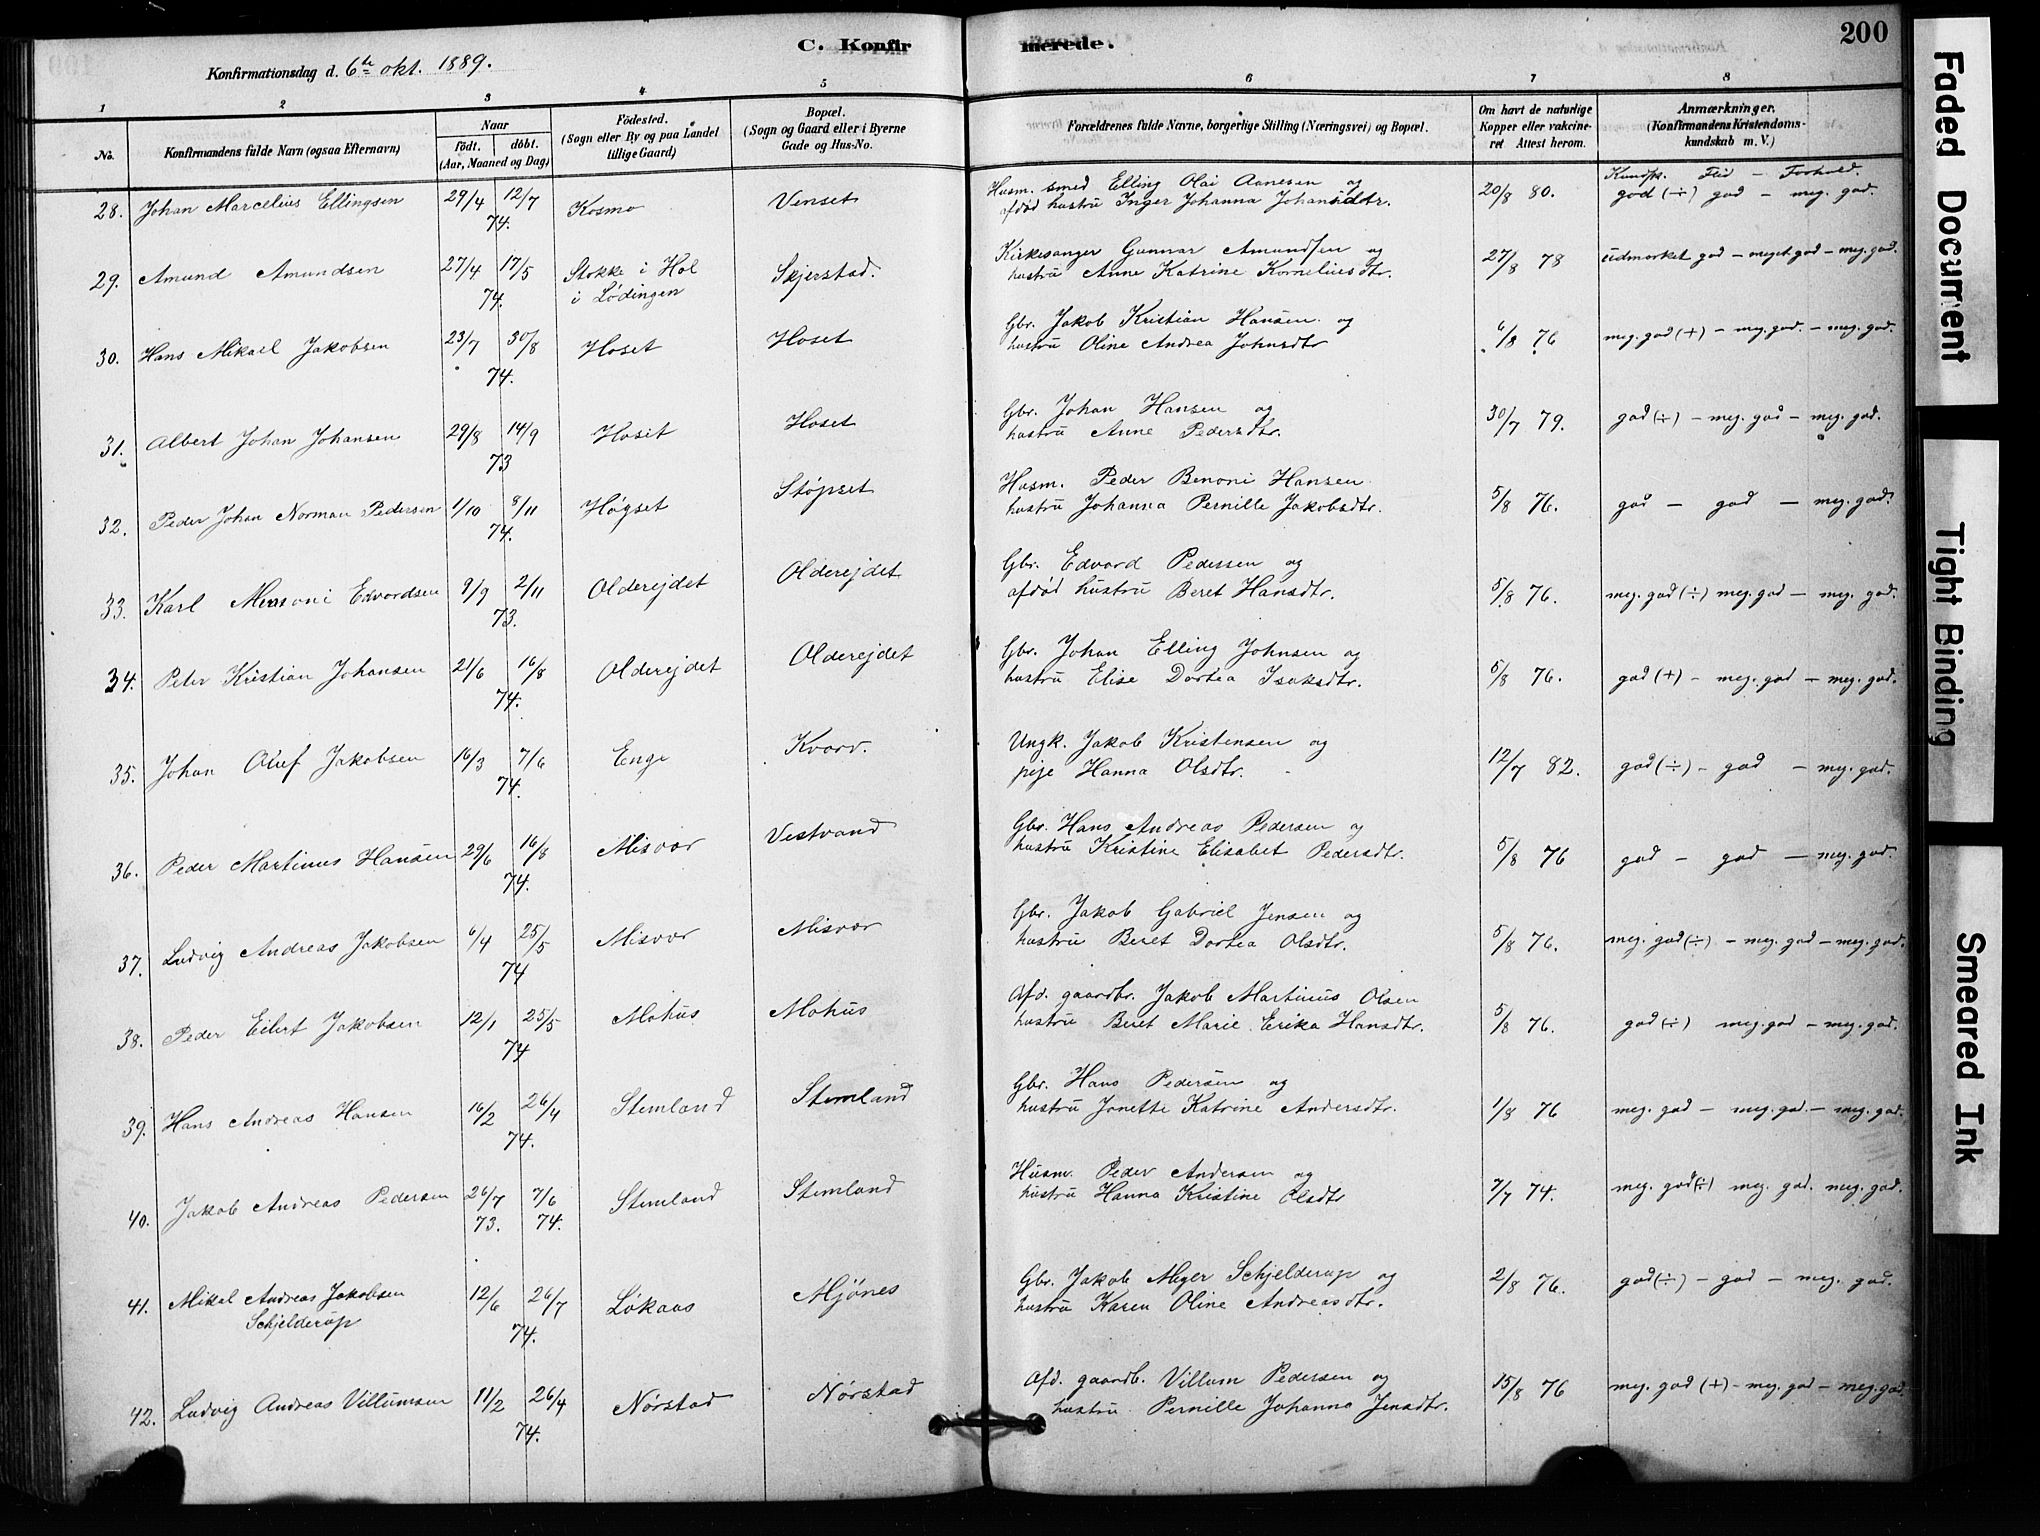 C. Konfirmerede.
200
Konfirmationsdag d. 6te okt. 1889.
1 2 3 4 5 6 7 8
No.
Konfirmandens fulde Navn (ogsaa Efternavn)
Naar
födt. döbt.
(Aar, Maaned og Dag)
Födested.
(Sogn eller By og paa Landet tillige Gaard)
Bopæl.
(Sogn og Gaard eller i Byerne Gade og Hus-No.
Forældrenes fulde Navne, borgerlige Stilling (Næringsvei) og Bopæl.
Om havt de naturlige Kopper eller vakcineret Attest herom.
Anmærkninger.
(Konfirmandens Kristendomskundskab m. V.)
Kundsk. Flid – Forhold.
28. Johan Marcelius Ellingsen 29/4 12/7 74. Kosmo Venset Husm. smed Elling Olai Aanesen og
afdød hustru Inger Johanna Johansdtr. 20/8 80. god (÷) god – meg. god.
29. Amund Amundsen 27/4 17/5 74. Stokke i Hol i Lødingen Skjerstad. Kirkesanger Gunnar Amundsen og
hustru Anne Katrine Korneliusdtr. 27/8 78 udmærket god – meget god – meg. god.
30. Hans Mikael Jakobsen 23/7 30/8 74. Hoset Hoset Gbr. Jakob Kristian Hansen og
hustru Oline Andrea Johnsdtr 6/8 76 meg. god (+) – meg. god. – meg. god.
31. Albert Johan Johansen 29/8 14/9 73 Hoset Hoset Gbr. Johan Hansen og
hustru Anne Pedersdtr. 30/7 79. god (÷) – meg. god – meg. god.
32. Peder Johan Norman Pedersen 1/10 8/11 74. Høgset Støpset Husm. Peder Benoni Hansen
hustru Johanna Pernille Jakobsdtr. 5/8 76. god – god – meg. god.
33. Karl Edvardsen 9/9 2/11 73. Olderejdet Olderejdet Gbr. Edvard Pedersen og
afdød hustru Beret Hansdtr. 5/8 76. meg. god (÷) meg. god – meg. god.
34. Peter Kristian Johansen 21/6 16/8 74. Olderejdet Olderejdet Gbr. Johan Elling Johnsen og
hustru Elise Dortea Isaksdtr. 5/8 76. god (+) – meg. god – meg. god.
35. Johan Oluf Jakobsen 16/3 7/6 74. Enge Kvarv. Ungk. Jakob Kristensen og
pige Hanna Olsdtr. 12/7 82. god (÷) – god – meg. god.
36. Peder Martinus Hansen 29/6 16/8 74. Misvær Vestvand Gbr. Hans Andreas Pedersen og
hustru Kristine Elisabet Pedersdtr. 5/8 76 god – god – meg. god.
37. Ludvig Andreas Jakobsen 6/4 25/5 74 Misvær Misvær Gbr. Jakob Gabriel Jensen og
hustru Beret Dortea Olsdtr. 5/8 76. meg. god (÷) – meg. god – meg. god.
38. Peder Eilert Jakobsen 12/1 25/5 74 Mohus Mohus Afd. gaardbr. Jakob Martinus Olsen
hustru Beret Marie Erika Hansdtr. 5/8 76. god (÷) meg. god – meg. god.
39. Hans Andreas Hansen 16/2 26/4 74. Stemland Stemland Gbr. Hans Pedersen og
hustru Jonette Katrine Andersdtr. 1/8 76 meg. god – meg. god. – meg. god.
40. Jakob Andreas Pedersen 26/7 73. 7/6 74. Stemland Stemland Husm. Peder Andersen og
hustru Hanna Kristine Olsdtr 7/7 74. meg. god (÷) meg. god. meg. god.
41. Mikal Andreas Jakobsen Schjelderup 12/6 26/7 74. Løkaas Mjønes Gbr. Jakob Meyer Schjelderup og
hustru Karen Oline Andreasdtr. 2/8 76. god (÷) – god – meg. god.
42. Ludvig Andreas Villumsen 11/2 26/4 74. Nørstad Nørstad Afd. gaardb. Villum Pedersen og
hustru Pernille Johanna Jensdtr. 15/8 76 meg. god (+) – meg. god – meg. god.
Faded Document
Tight Binding
Smeared Ink